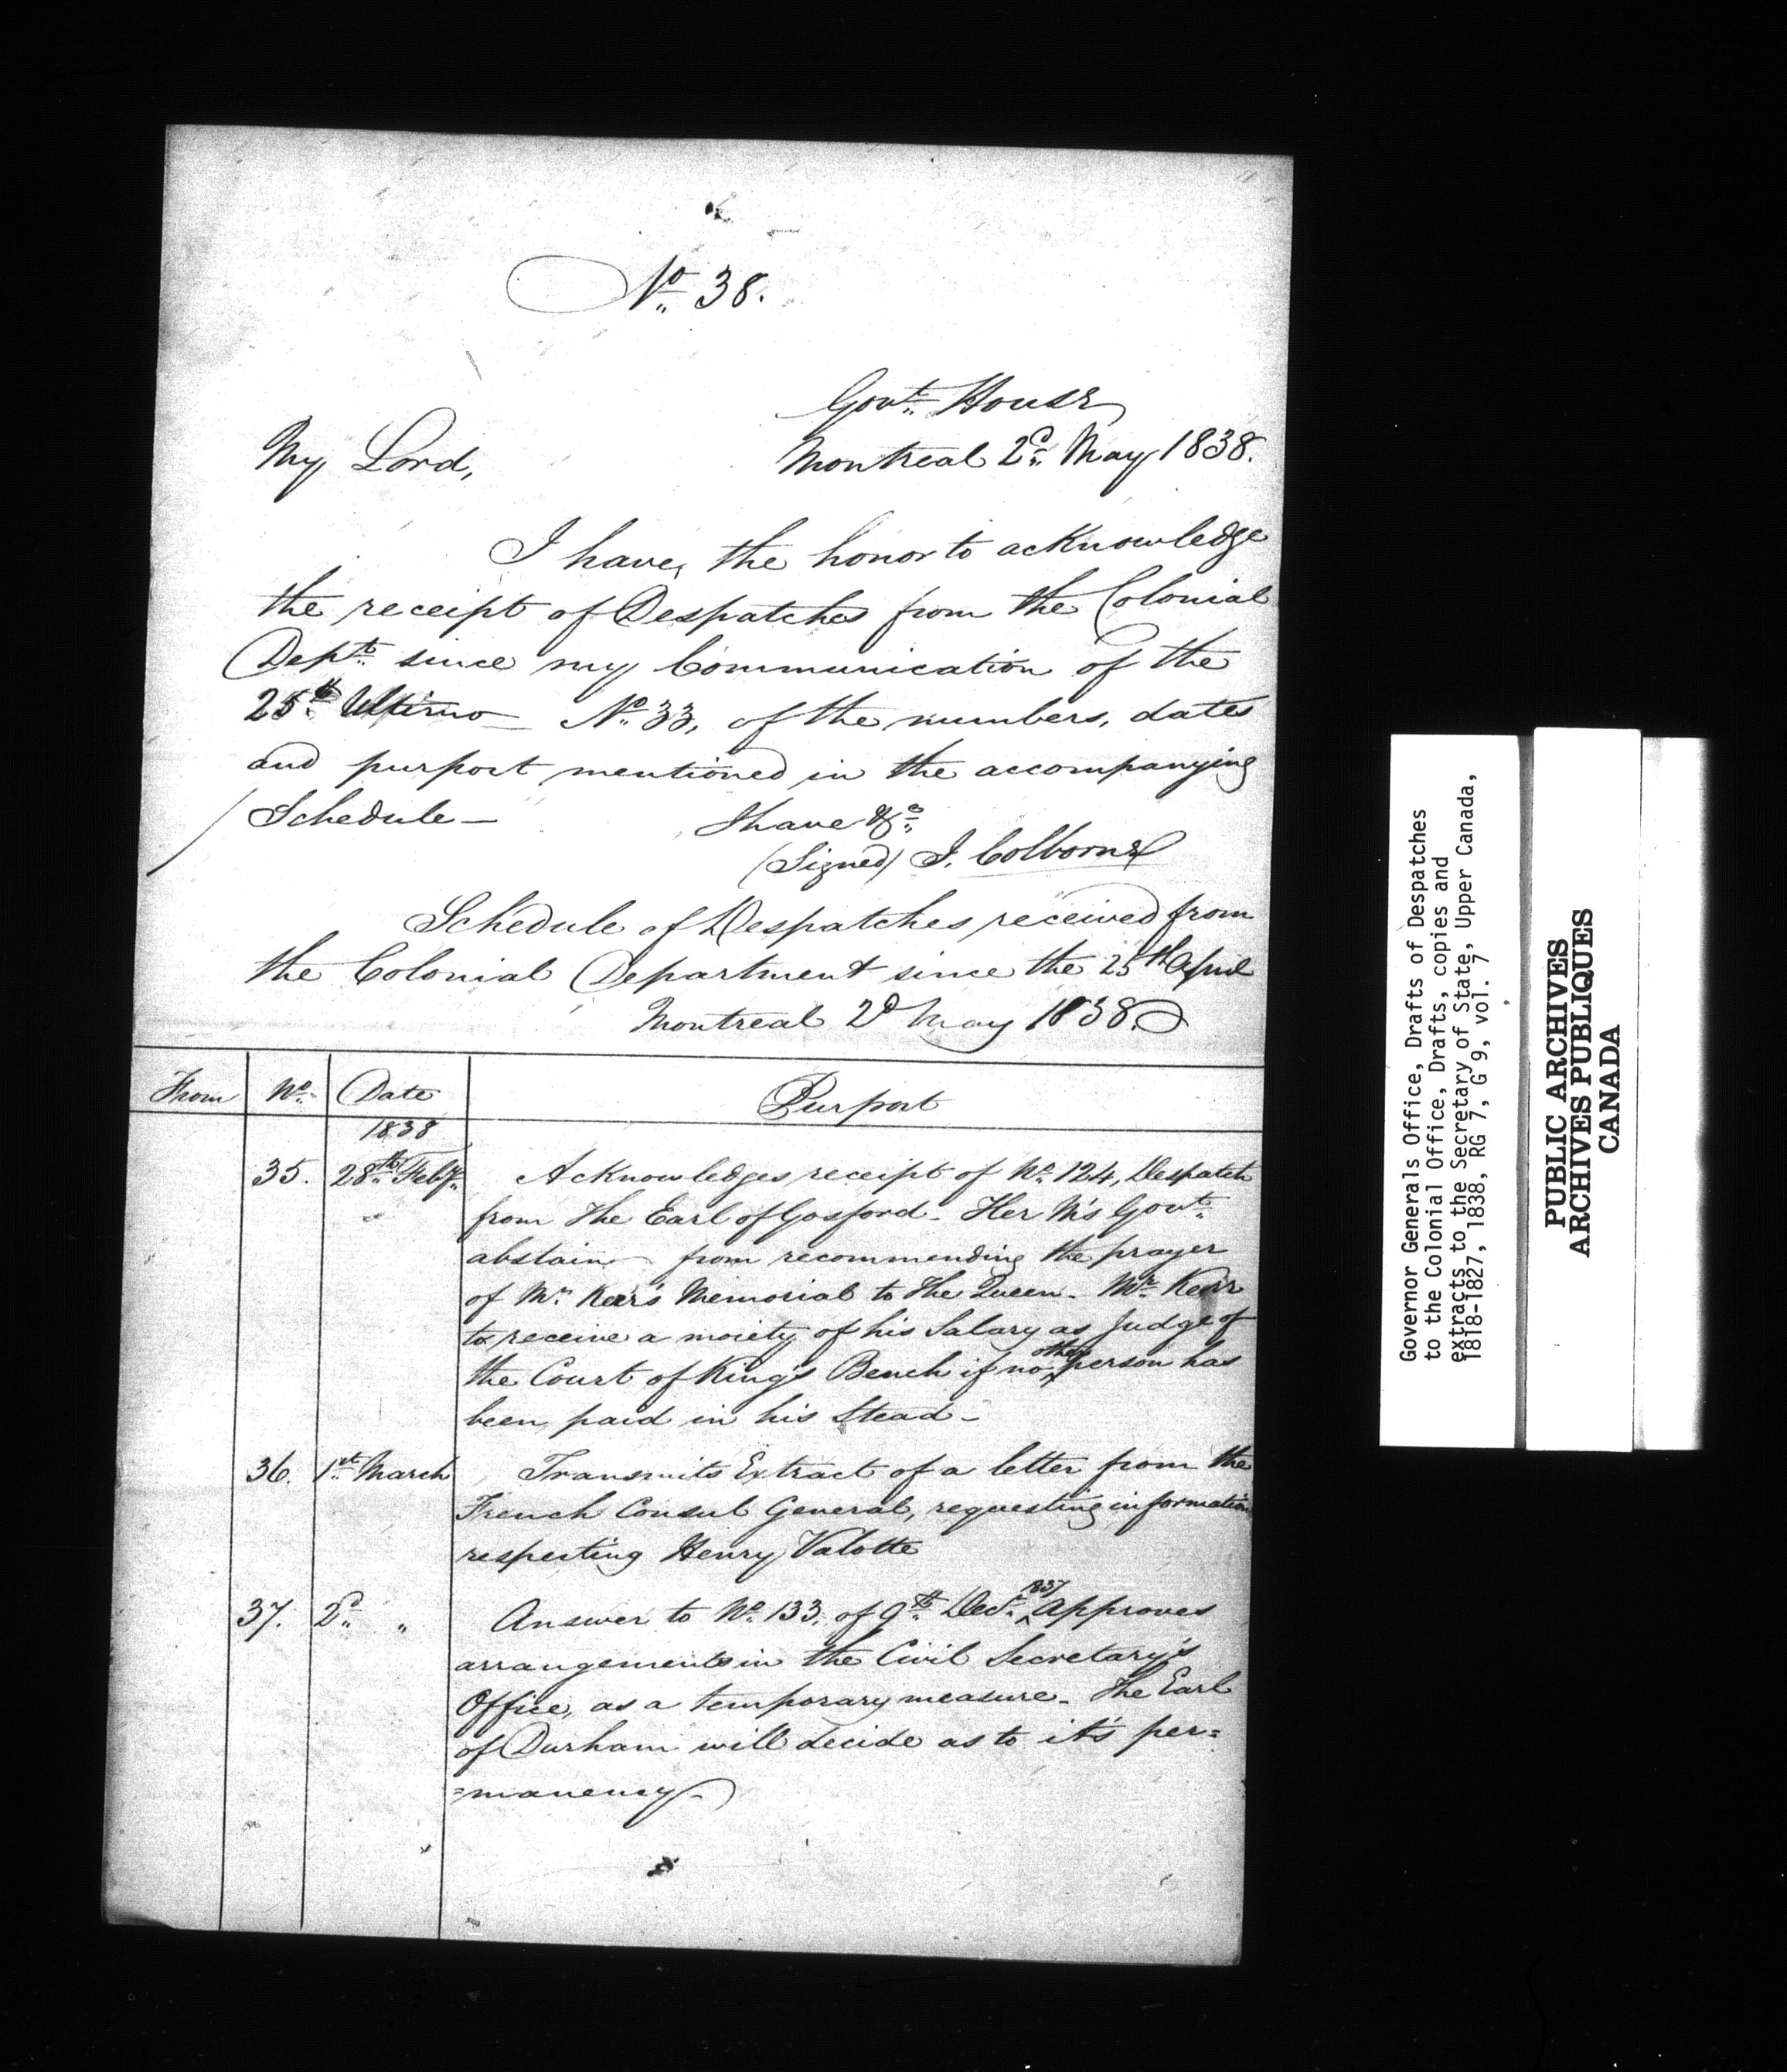 No. 38.
Govt. House
Montreal 2d. May 1838.
My Lord,
I have the honor to acknowledge
the receipt of Despatches from the Colonial
Dept. since my Communication of the
25th. Ultimo — No. 33, of the numbers, dates
and purport mentioned in the accompanying
Schedule —
I have &c.
(Signed) J. Colborne
Schedule of Despatches received from
the Colonial Department since the 25th April
Montreal 2d May 1838.
From No. Date Purport
1838
35. 28th. Feby. Acknowledges receipt of No. 124, Despatch
from The Earl of Gosford - Her M's Govt.
abstain from recommending the prayer
of Mr. Kerr's Memorial to the Queen - Mr. Kerr
to receive a moiety of his Salary as Judge of
the Court of King's Bench if no other person has
been paid in his Stead -
36. 1st. March Transmits Extract of a letter from the
French Consul General, requesting information
respecting Henry Valotte
37. 2d. " Answer to No. 133. of 9th. Decr. 1837 Approves
arrangements in the Civil Secretary's
Office, as a temporary measure - The Earl
of Durham will decide as to it's per=
=manency -
Governor Generals Office, Drafts of Despatches
to the Colonial Office, Drafts, copies and
extracts to the Secretary of State, Upper Canada,
1818-1827, 1838, RG 7, G 9, vol. 7
PUBLIC ARCHIVES
ARCHIVES PUBLIQUES
CANADA